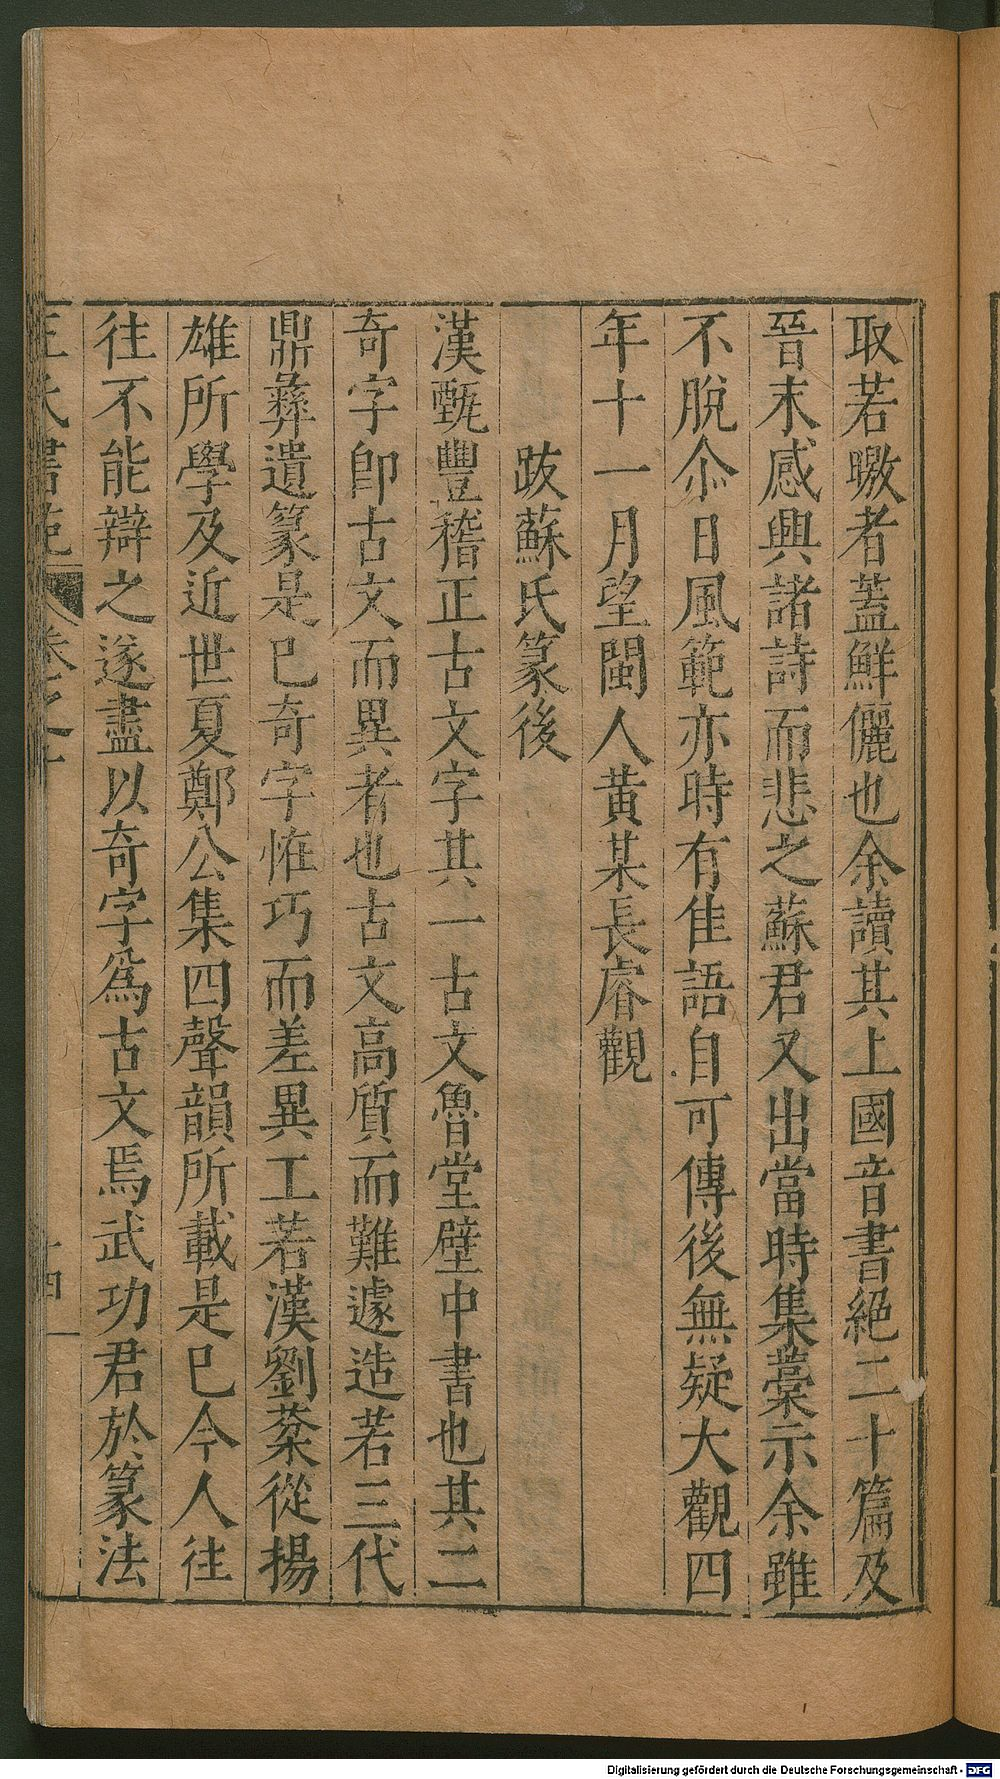 取若暾者蓋鮮儷也余讀其上國音書絕二十篇及
晉末感興諸詩而悲之蘇君又出當時集藁示余雖
不脫尒日風範亦時有佳語自可傳後無疑大觀四
年十一月望閩人黄某長睿觀
跋蘇氏篆後
漢甄豐稽正古文字其一古文魯堂壁中書也其二
奇字卽古文而異者也古文高質而難遽造若三代
鼎彝遺篆是巳奇字惟巧而差異工若漢劉棻從揚
雄所學及近世夏鄭公集四聲韻所載是巳今人往
往不能辯之遂盡以奇字爲古文焉武功君於篆法
王氏書苑 卷之十
十四
Digitalisierung gefördert durch die Deutsche Forschungsgemeinschaft - DFG